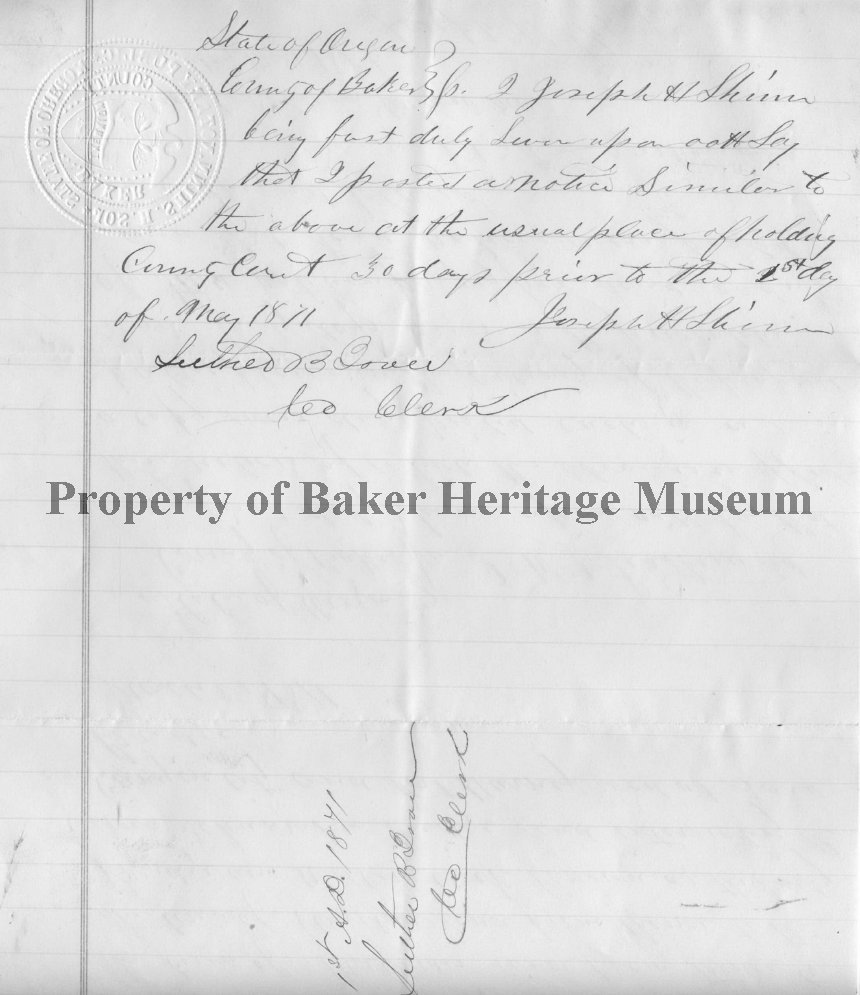 State of Oregon
County of Baker } Ss. I Joseph H Shinn
being first duly sworn upon oath Say
that I posted a notice Similar to
the above at the usual place of holding
County Court 30 days prior to the 1st day
of May 1871 Joseph H Shinn
Luther B Ison
Co Clerk
Property of Baker Heritage Museum
1st A.D. 1871
Luther B Ison
Co Clerk